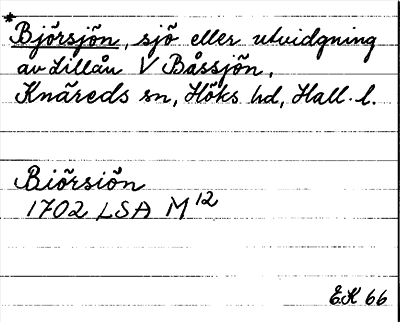 *Björsjön, sjö eller utvidgning
av Lillån V Båssjön,
Knäreds sn, Höks hd, Hall. l.
Biörsiön
1702 LSA M 12
E.K 66